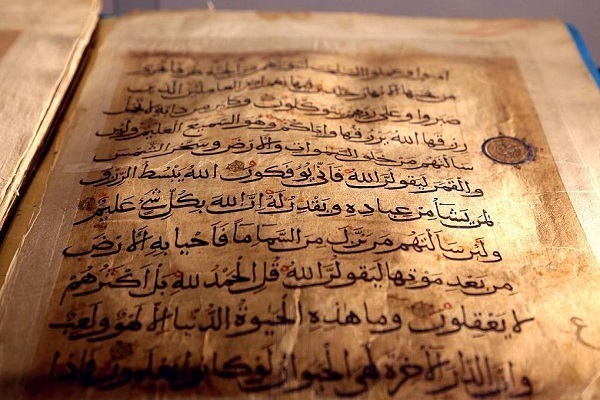 امنوا وعملوا الصالحات لنبوئنهم من الجنة غرفا تجري
من تحتها الانهار خالدين فيها نعم اجر العاملين الذين
صبروا وعلى ربهم يتوكلون وكاين من دابة لا تحمل
رزقها الله يرزقها واياكم وهو السميع العليم ولئن
سالتهم من خلق السموات والارض وسخر الشمس
والقمر ليقولن الله فانى يوفكون الله يبسط الرزق
لمن يشا من عباده ويقدر له ان الله بكل شي عليم
ولئن سالتهم من نزل من السما ما فاحيا به الارض
من بعد موتها ليقولن الله قل الحمد لله بل اكثرهم
لا يعقلون وما هذه الحيوة الدنيا الا لهو ولعب
ع
وان الدار الاخرة لهي الحيوان لو كانوا يعلمون فاذا